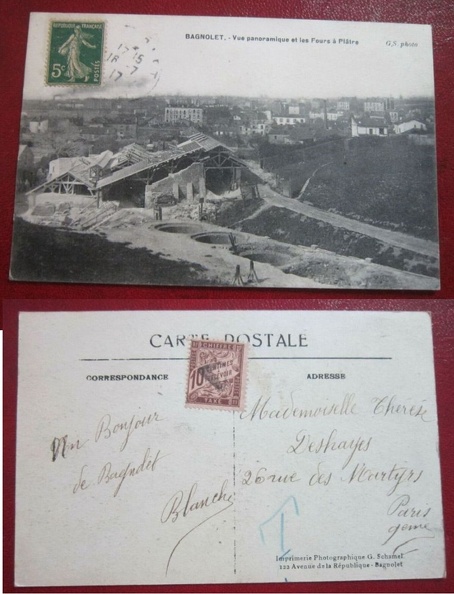 BAGNOLET. - Vue panoramique et les Fours à Plâtre
G.S. photo
5c
POSTES
CARTE POSTALE
CORRESPONDANCE
ADRESSE
CHIFFRE
10 CENTIMES
TAXE
Un Bonjour
de Bagnolet
Blanche
Mademoiselle Therèse
Deshayes
26 rue des Martyrs
Paris
9eme
T
Imprimerie Photographique G. Schamel
122 Avenue de la République - Bagnolet